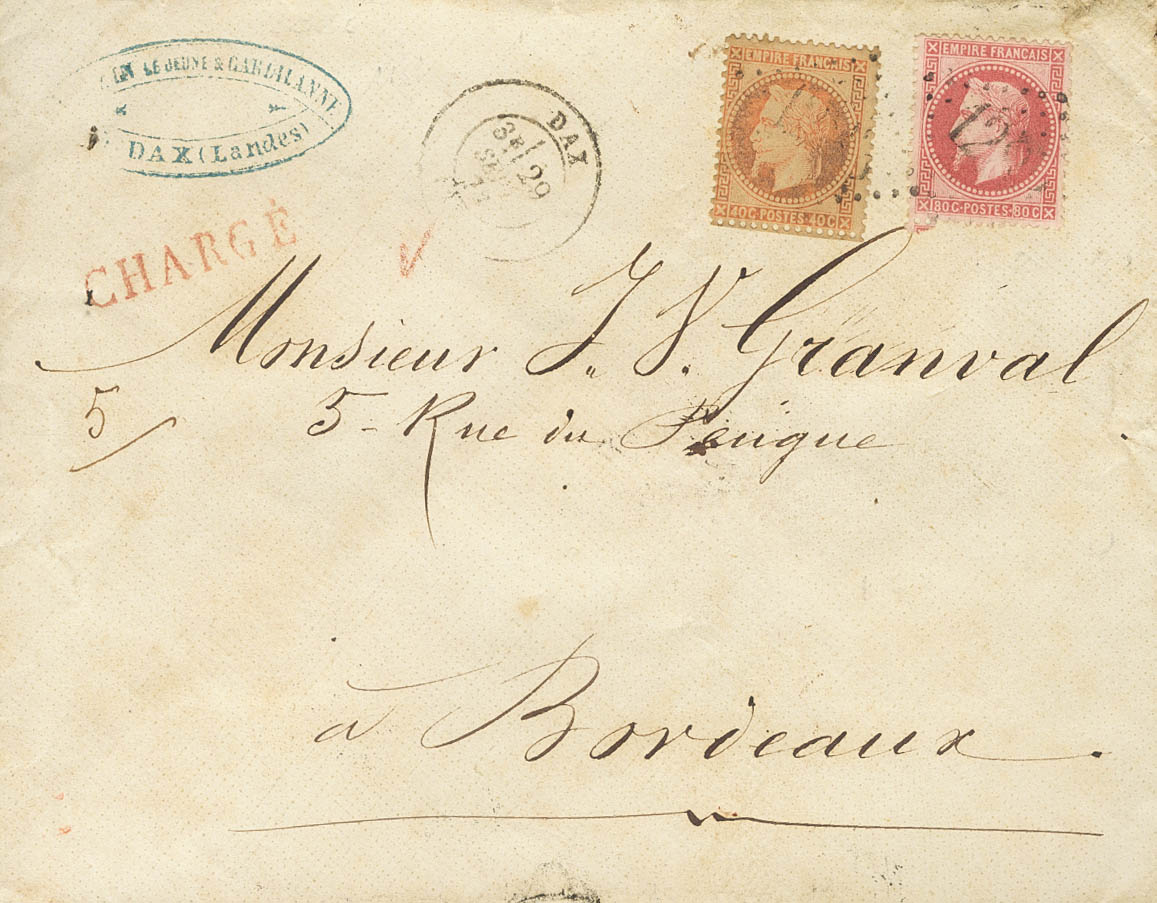 LE JEUNE & GARDILANNE
DAX (Landes)
DAX
3E/ 29
EMPIRE FRANÇAIS
40C·POSTES·40C
EMPIRE FRANÇAIS
80C·POSTES·80C
CHARGÉ
Monsieur J. V. Granval
5/
5 - Rue du Peügue
à Bordeaux.